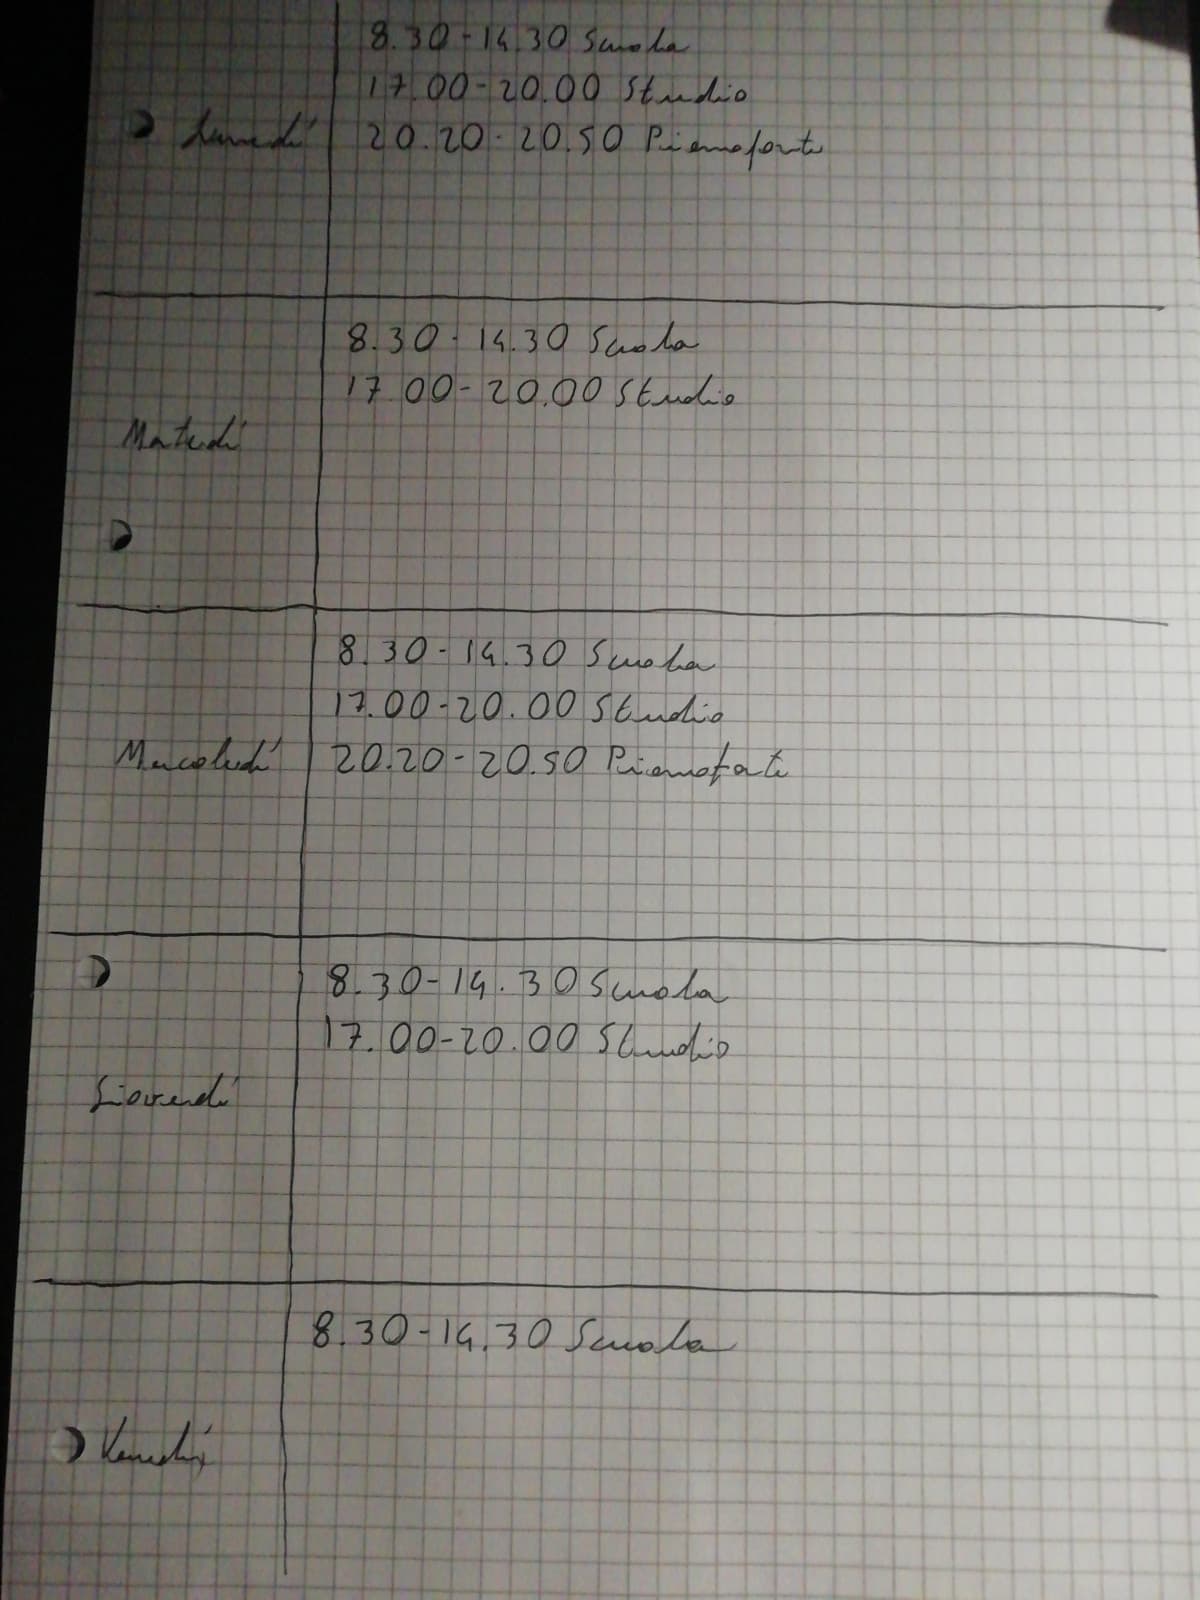 8.30-14.30 Scuola
17.00-20.00 Studio
Lunedí 20.20-20.50 Pianoforte
8.30-14.30 Scuola
17.00-20.00 Studio
Martedí
8.30-14.30 Scuola
17.00-20.00 Studio
Mercoledí 20.20-20.50 Pianoforte
8.30-14.30 Scuola
17.00-20.00 Studio
Giovedí
8.30-14.30 Scuola
Venerdí